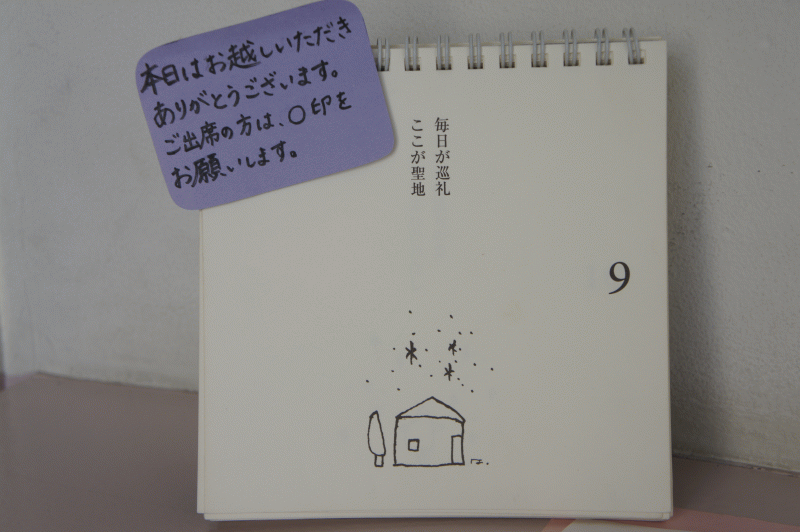 本日はお越しいただき
ありがとうございます。
ご出席の方は、○印を
お願いします。
毎日が巡礼
ここが聖地
9
は.